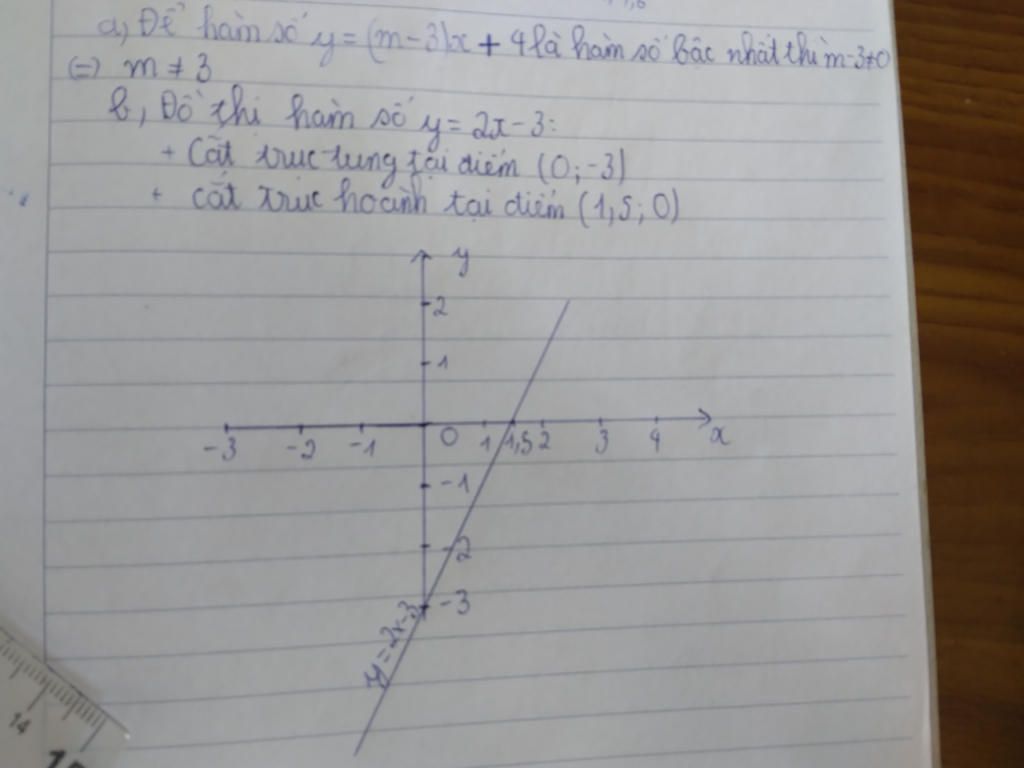 a, Để hàm số y = (m-3)x + 4 là hàm số bậc nhất thì m-3≠0
(=) m ≠ 3
b, Đồ thị hàm số y = 2x-3:
+ Cắt trục tung tại điểm (0; -3)
+ cắt trục hoành tại điểm (1,5; 0)
y
2
1
-3 -2 -1 0 1 1,5 2 3 4 x
-1
-2
-3
y = 2x-3
14
15